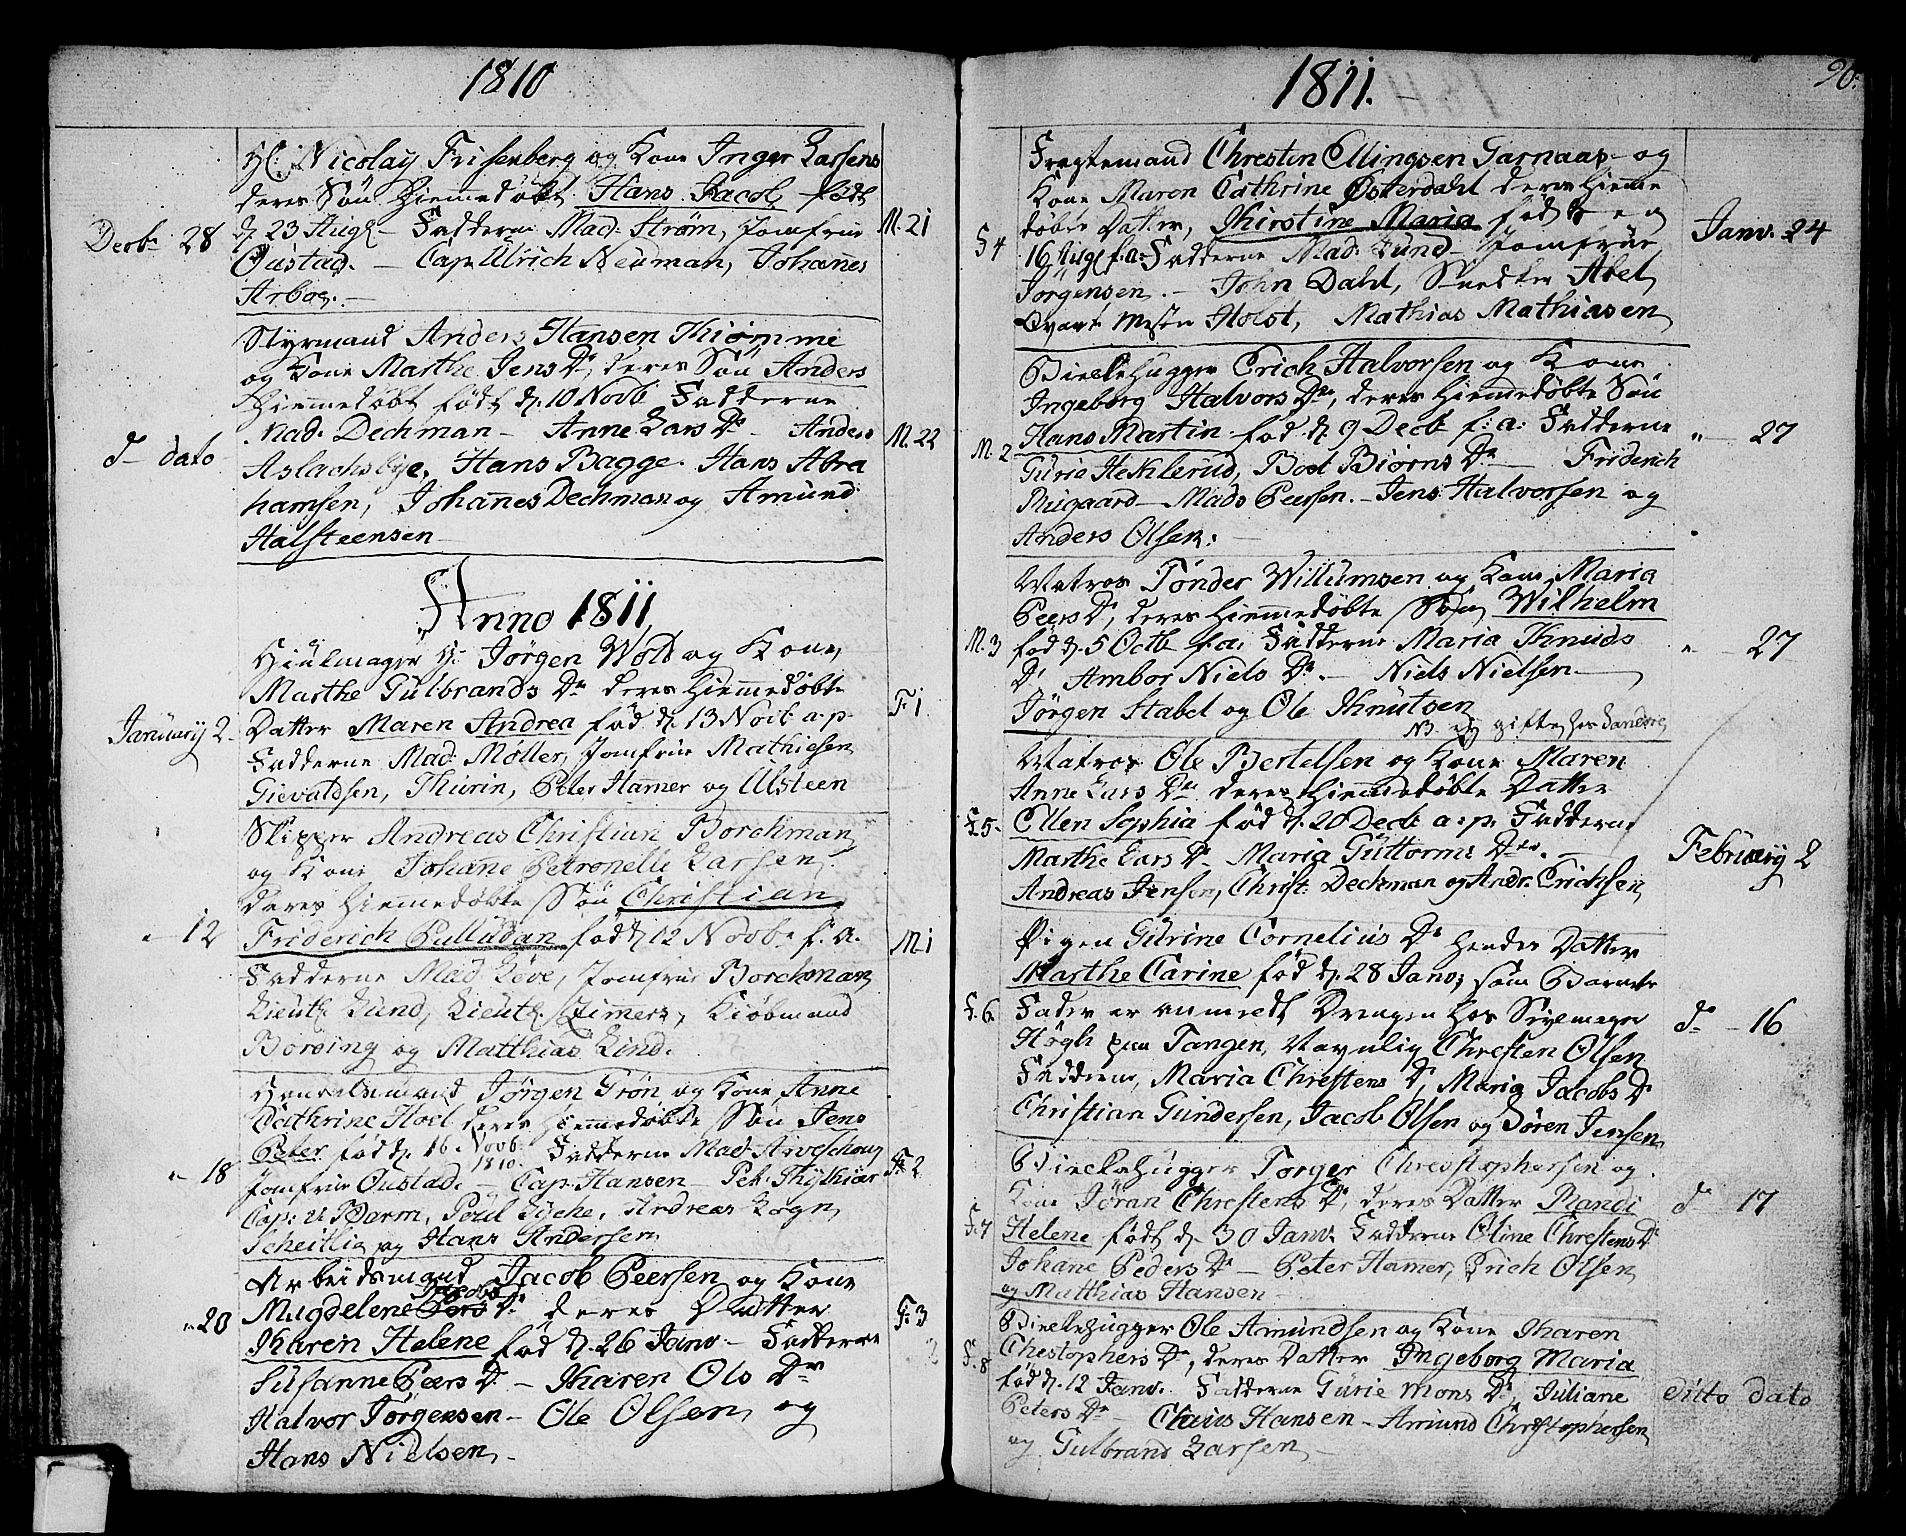 1810
H: Nicolay Frisenberg og Kone Inger Larsens
deres Søn Hiemmedøbt Hans Jacob født
Decbr 28 d. 23 Augt - Fadderne Mad: Strøm, Jomfrue M. 21
Oustad. - Cap. Ulrich Neuman, Johannes
Arboe. -
Styrmand Anders Hansen Thiømme
og Kone Marthe Jens Dr, deres Søn Anders
Hiemmedøbt født d. 10 Novb Fadderne
Mad. Dechman - Anne Lars Dr - Anders
d - dato M. 22
Aslachsbye. Hans Bagge. Hans Abra
hamsen, Johannes Dechman og Amund
Halsteensen
Anno 1811
Hiulmager H: Jørgen Wold og Kone,
Marthe Gulbrands Dr deres Hiemmedøbte
January 2 Datter Maren Andrea fød d. 13 Novb: a. p. F. 1
Fadderne Mad: Møller, Jomfrue Mathiesen
Gievaldsen, Thurin, Peter Hammer og Ulsteen
Skipper Andreas Christian Borchman
og Kone Johanne Petronelle Larsen,
deres Hiemmedøbte Søn Christian
" 12 Friderich Palludan fød d. 12 Novbr f. a. M. 1
Fadderne Mad Leve, Jomfrue Borchman
Lieut: Lund, Lieut: Zimmers, Kiøbmand
Borsing og Matthias Lind.
Handelsmand Jørgen Grøn og Kone Anne
Cathrine Hoel deres Hiemmedøbte Søn Jens
Peter fød d. 16 Novb: 1810. Fadderne Mad Arveschoug
" 18 Jomfrue Oustad. - Cap: Hansen - Pet: Thykiær F. 2
Cap: Barm, Poul Lyche. Andreas Rogn
Scheitlia og Hans Andersen
Arbeidsmand Jacob Peersen og Kone
Magdelene Jacobs Dr deres Datter
" 20 Karen Helene fød d. 26 Janv - Fadderne F. 3
Susanne Peers D - Karen Ols Dr
Halvor Jørgensen - Ole Olsen og
Hans Nielsen.
1811. 90.
Fregtemand Chresten Ellingsen Garnaas og
Kone Maren Cathrine Østerdahl deres Hiemme
døbte Datter, Kirstine Maria fød d en
F. 4 16 Augt f. a. Fadderne Mad: Lund - Jomfrue Janv. 24
Jørgensen. - John Dahl, Snedker Abel
Qvarte Mester Holst, Mathias Mathiasen
Bielkehugger Erich Halvorsen og Kone
Ingeborg Halvors Dr, deres Hiemmedøbte Søn
M. 2 Hans Martin fød d. 9 Decb f: a: Fadderne " - 27
Gurie Heklerud, Boel Biørns Dr - Friderich
Rugaard - Mads Peersen. - Jens Halvorsen og
Anders Olsen.
Matros Tønder Willumsen og Kone Maria
Peers Dr, deres Hiemmedøbte Søn Wilhelm
M. 3 fød d. 5 Octb f. a: Fadderne Maria Knuds " - 27
Dr Ambor Niels Dr. - Niels Nielsen
Jørgen Stabel og Ole Knutsen
NB gifte
Matros Ole Bertelsen og Kone Maren
Anne Lars Dr deres Hiemmedøbte Datter
F. 5. Ellen Sophia fød d. 20 Decb: a. p. Fadderne
Marthe Lars Dr Maria Guttorms Dr. - February 2
Andreas Jensen, Christ: Dechman og Andr. Erichsen
Pigen Gurine Cornelius Dr hendes Datter
Marthe Carine fød d. 28 Janv; som Barnets
F. 6 Fader er anmeldt Drengen hos Seylmager d - 16
Høgh paa Tangen, Navnlig Chresten Olsen
Fadderne, Maria Chrestens Dr, Maria Jacobs Dr
Christian Gundersen, Jacob Olsen og Søren Jensen
Bielkehugger Torger Chrestophersen og
Kone Jøran Chrestens Dr, deres Datter Randi d - 17
F. 7 Helene født d. 30 Janv. Fadderne Oline Chrestens Dr
Johane Peders Dr - Peter Hamer, Erich Olsen
og Matthias Hansen
Bielkehugger Ole Amundsen og Kone Karen
Chestophers Dr, deres Datter Ingeborg Maria
F. 8 fød d. 12 Janv. Fadderne Gurie Mons Dr, Juliane ditto dato
Peters Dr - Claus Hansen - Amund Christophersen
og Gulbrand Larsen